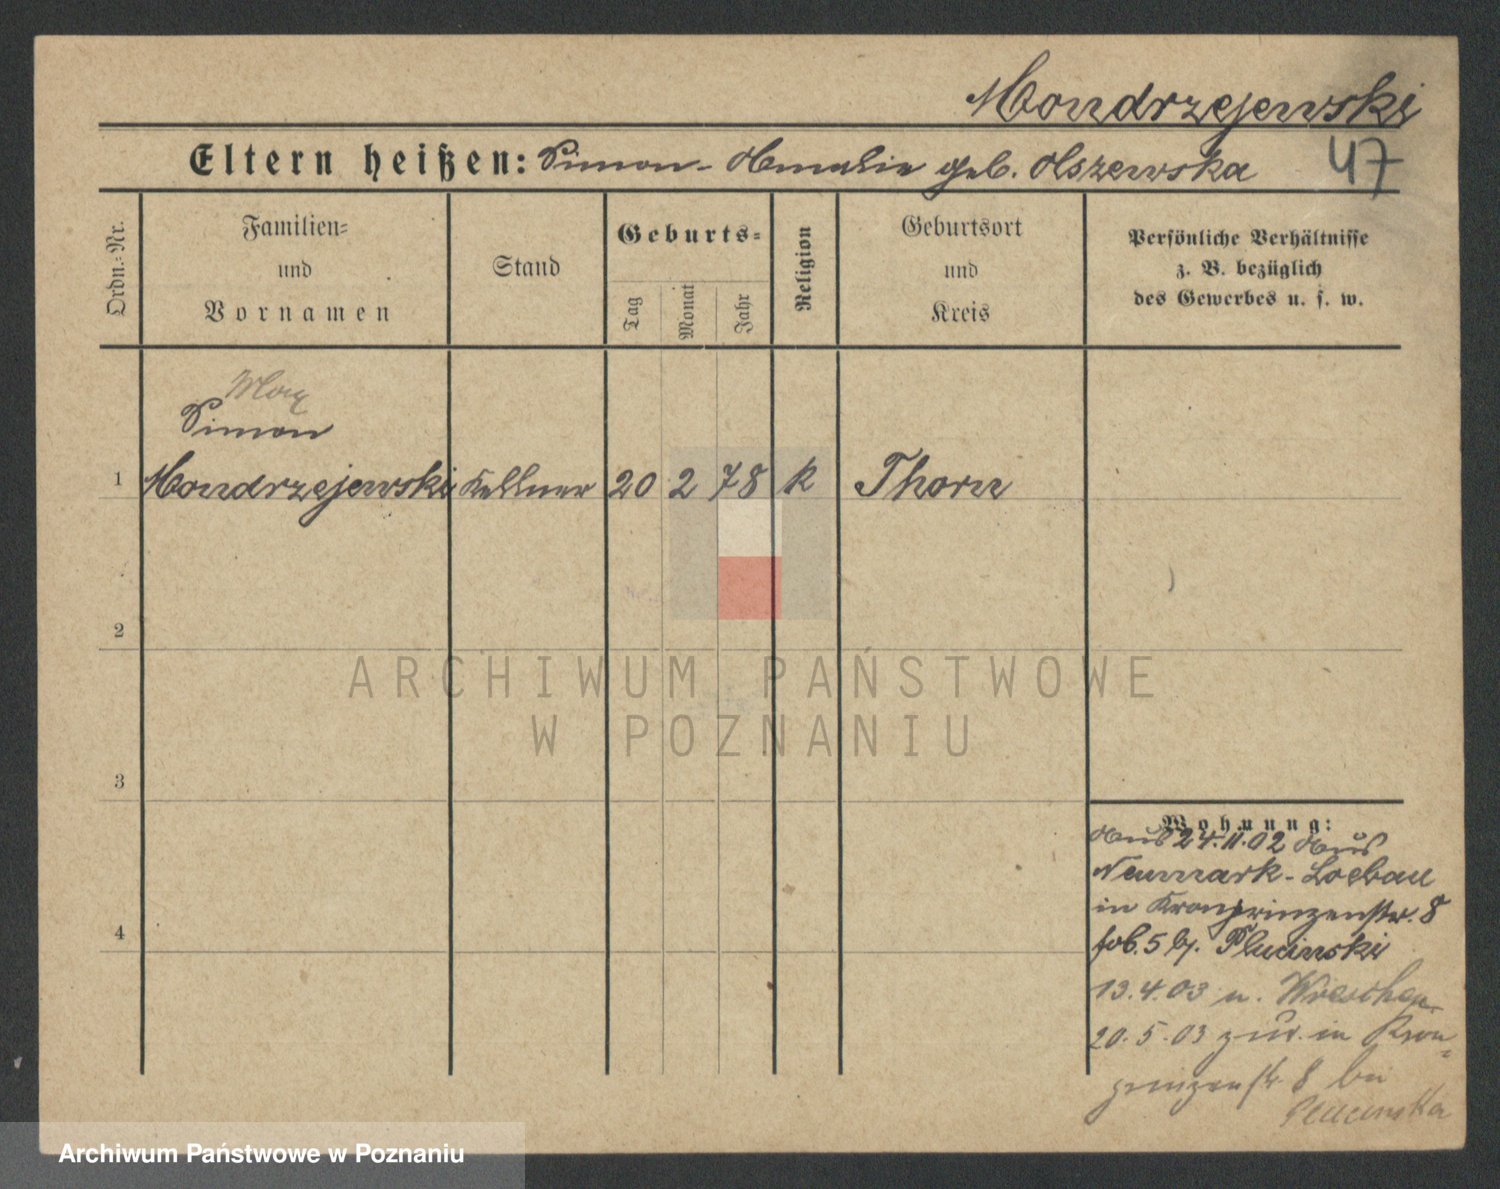 Mondrzejewski
Eltern heißen: Simon - Amalie geb. Olszewska
47
Ordn.-Nr.
Familien-
und
Vornamen
Stand
Geburts-
Tag
Monat
Jahr
Religion
Geburtsort
und
Kreis
Persönliche Verhältnisse
z. B. bezüglich
des Gewerbes u. s. w.
Max
Simon
1 Mondrzejewski Kellner 20 2 78 k Thorn
2
3
4
Wohnung:
24.11.02 aus
Neumark - Loebau
in Kronprinzenstr. 8
5 b. Plucinski
13.4.03 n. Wreschen
20.5.03 zur. in Kron-
prinzenstr. 8 bei
Plucinska
ARCHIWUM PAŃSTWOWE
W POZNANIU
Archiwum Państwowe w Poznaniu